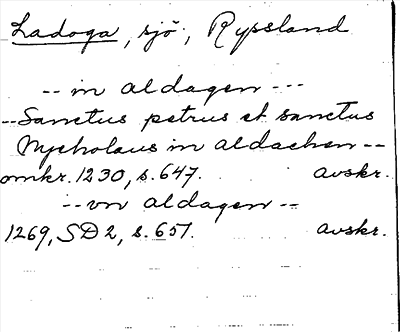 Ladoga, sjö, Ryssland
-- in aldagen ---
-- Sanctus petrus et sanctus
Nycholaus in aldachen --
omkr. 1230, s. 647. avskr.
-- vn aldagen --
1269, SD 2, s. 651. avskr.